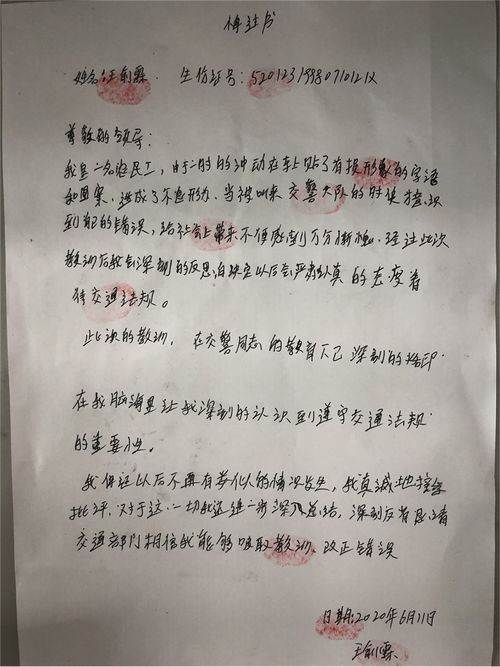 悔过书
姓名:王剑霖 生份证号:52012319980710121X
尊敬的领导:
我是一名农民工,由于一时的冲动在车上贴了有损形象的字语
和图案,造成了不良形力,当被叫来交警大队的时候才意识
到自己的错误,给社会上带来不便感到万分惭愧,经过此次
教训后我会深刻的反思,自决定以后会严肃认真的态度看
待交通法规。
此次的教训,在交警同志的教育下已深刻的烙印
在我脑海里让我深刻的认识到遵守交通法规
的重要性。
我保证以后不再有类似的情况发生,我真诚地接受
批评,对于这一切我还进一步深入总结,深刻反省恳请看
交通部门相信我能够吸取教训、改正错误
日期:2020年6月11日
王剑霖